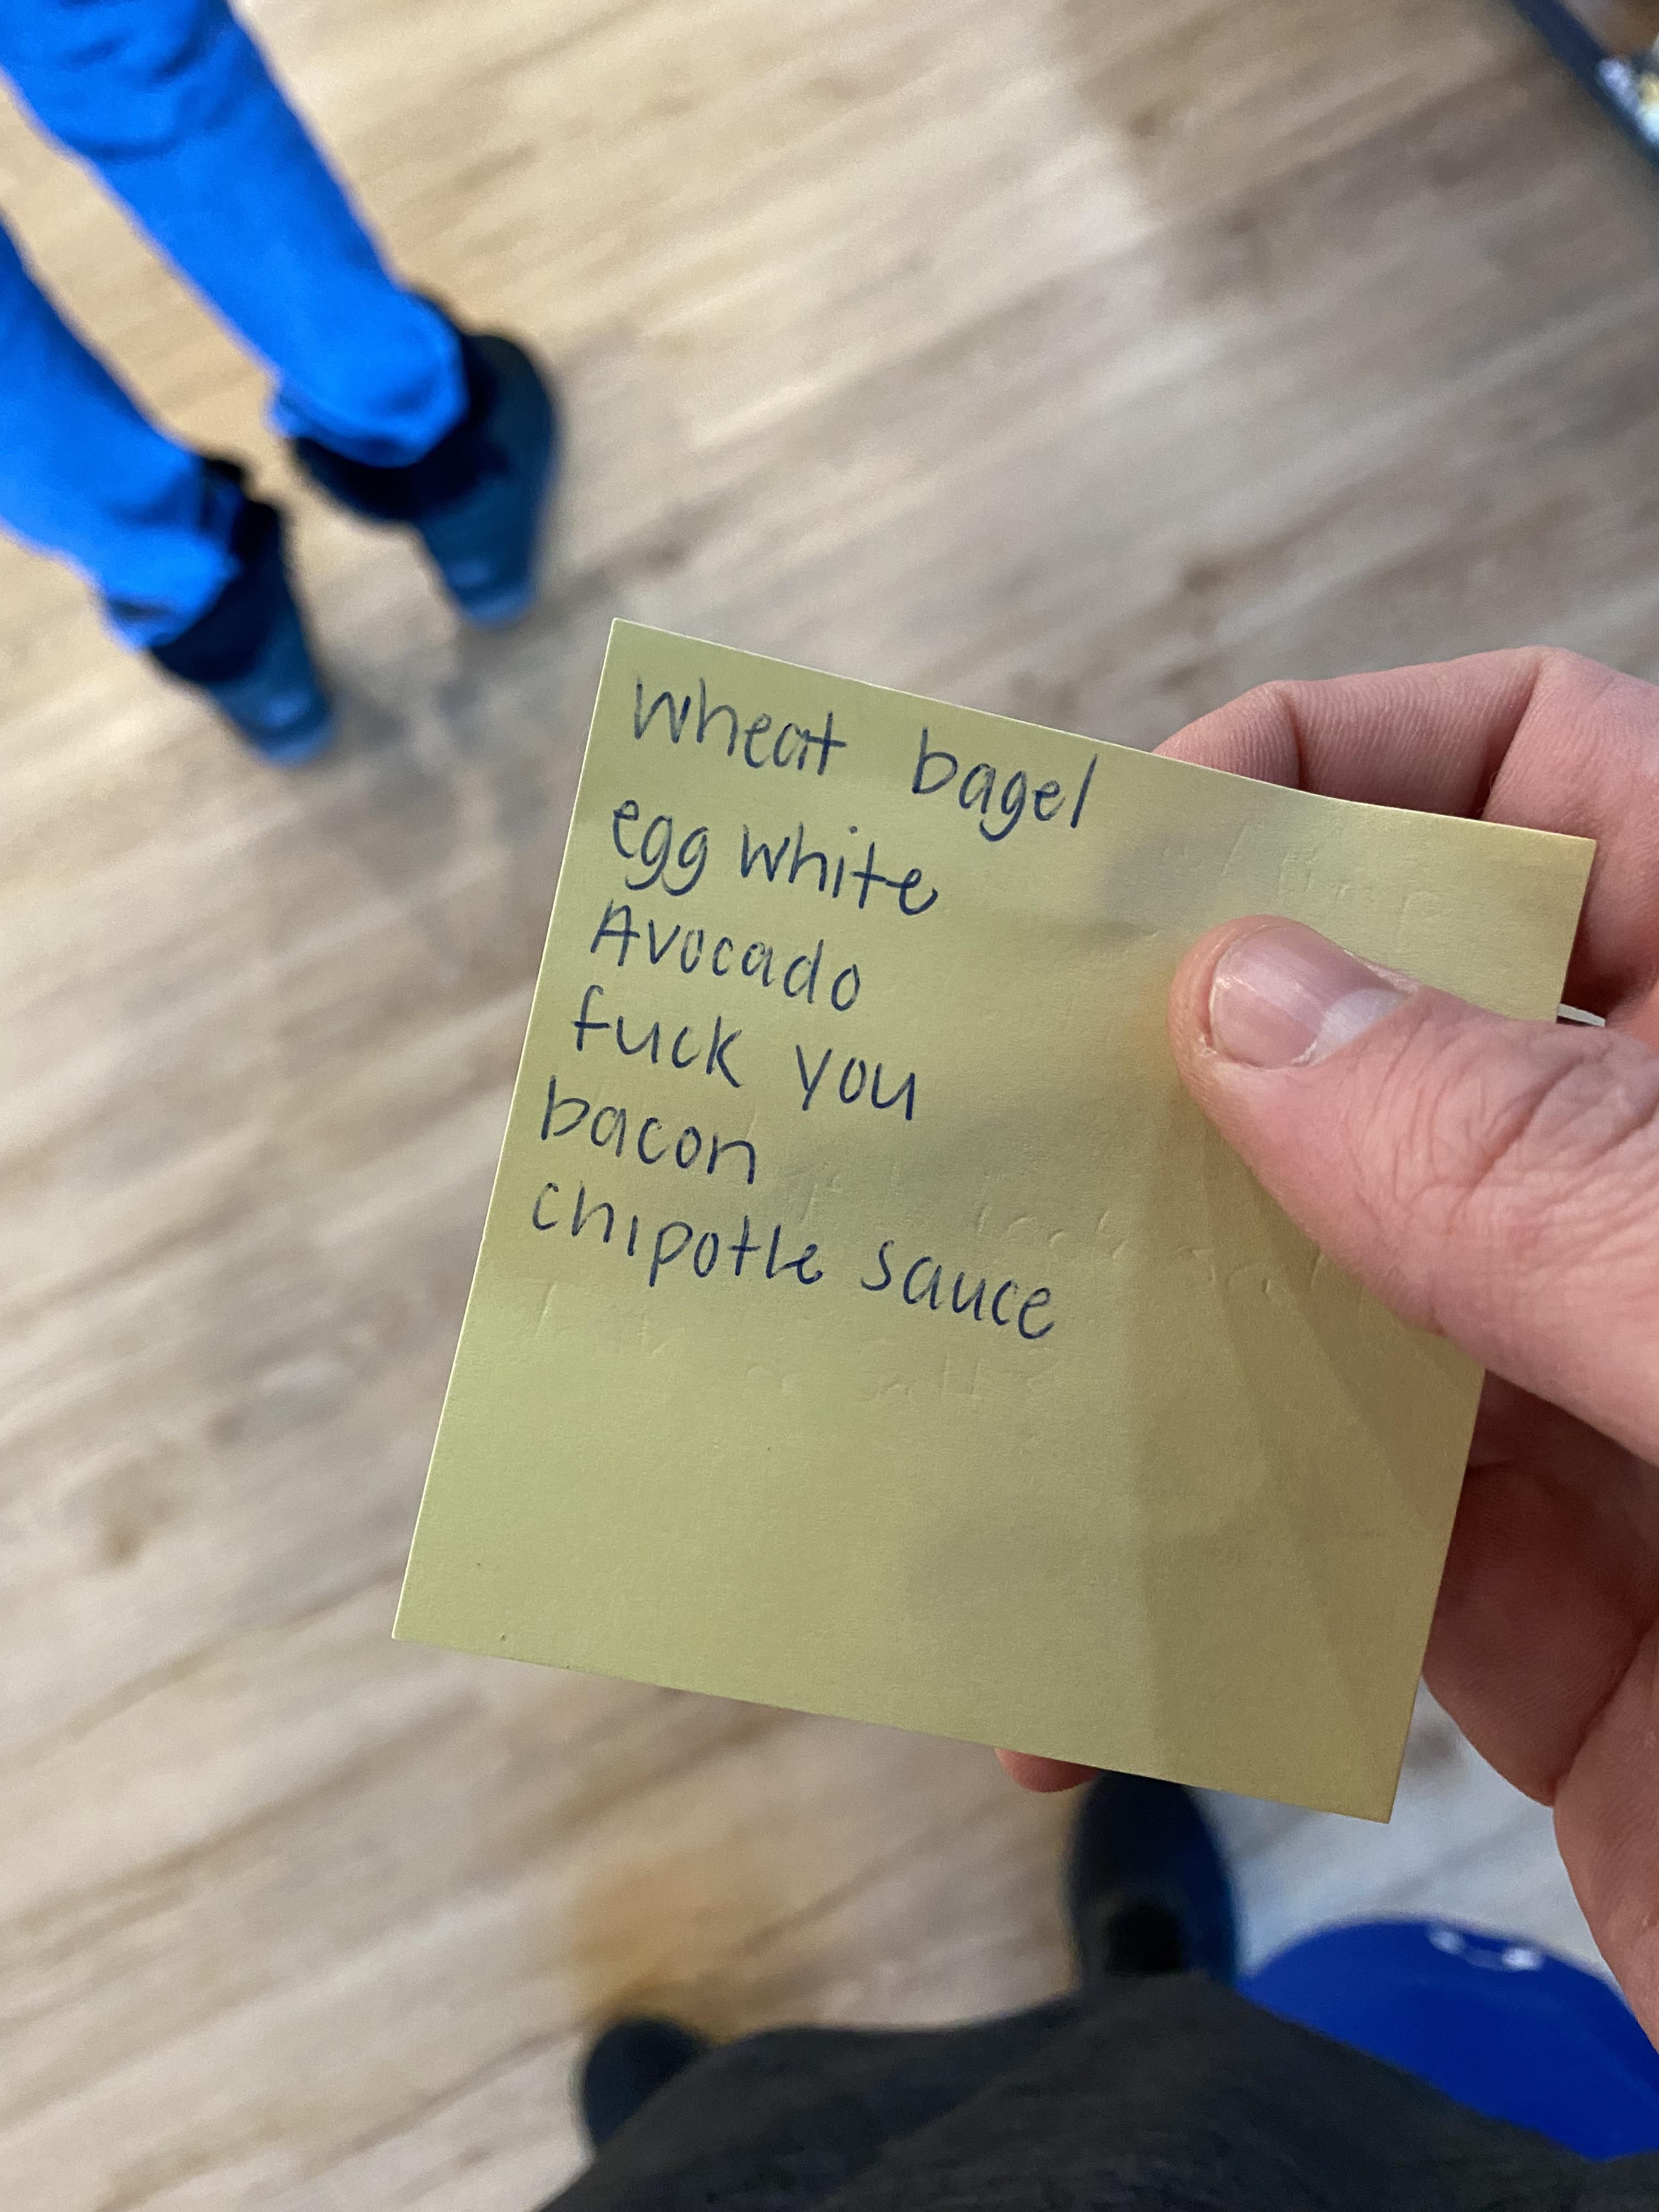 wheat bagel
egg white
Avocado
fuck you
bacon
chipotle sauce